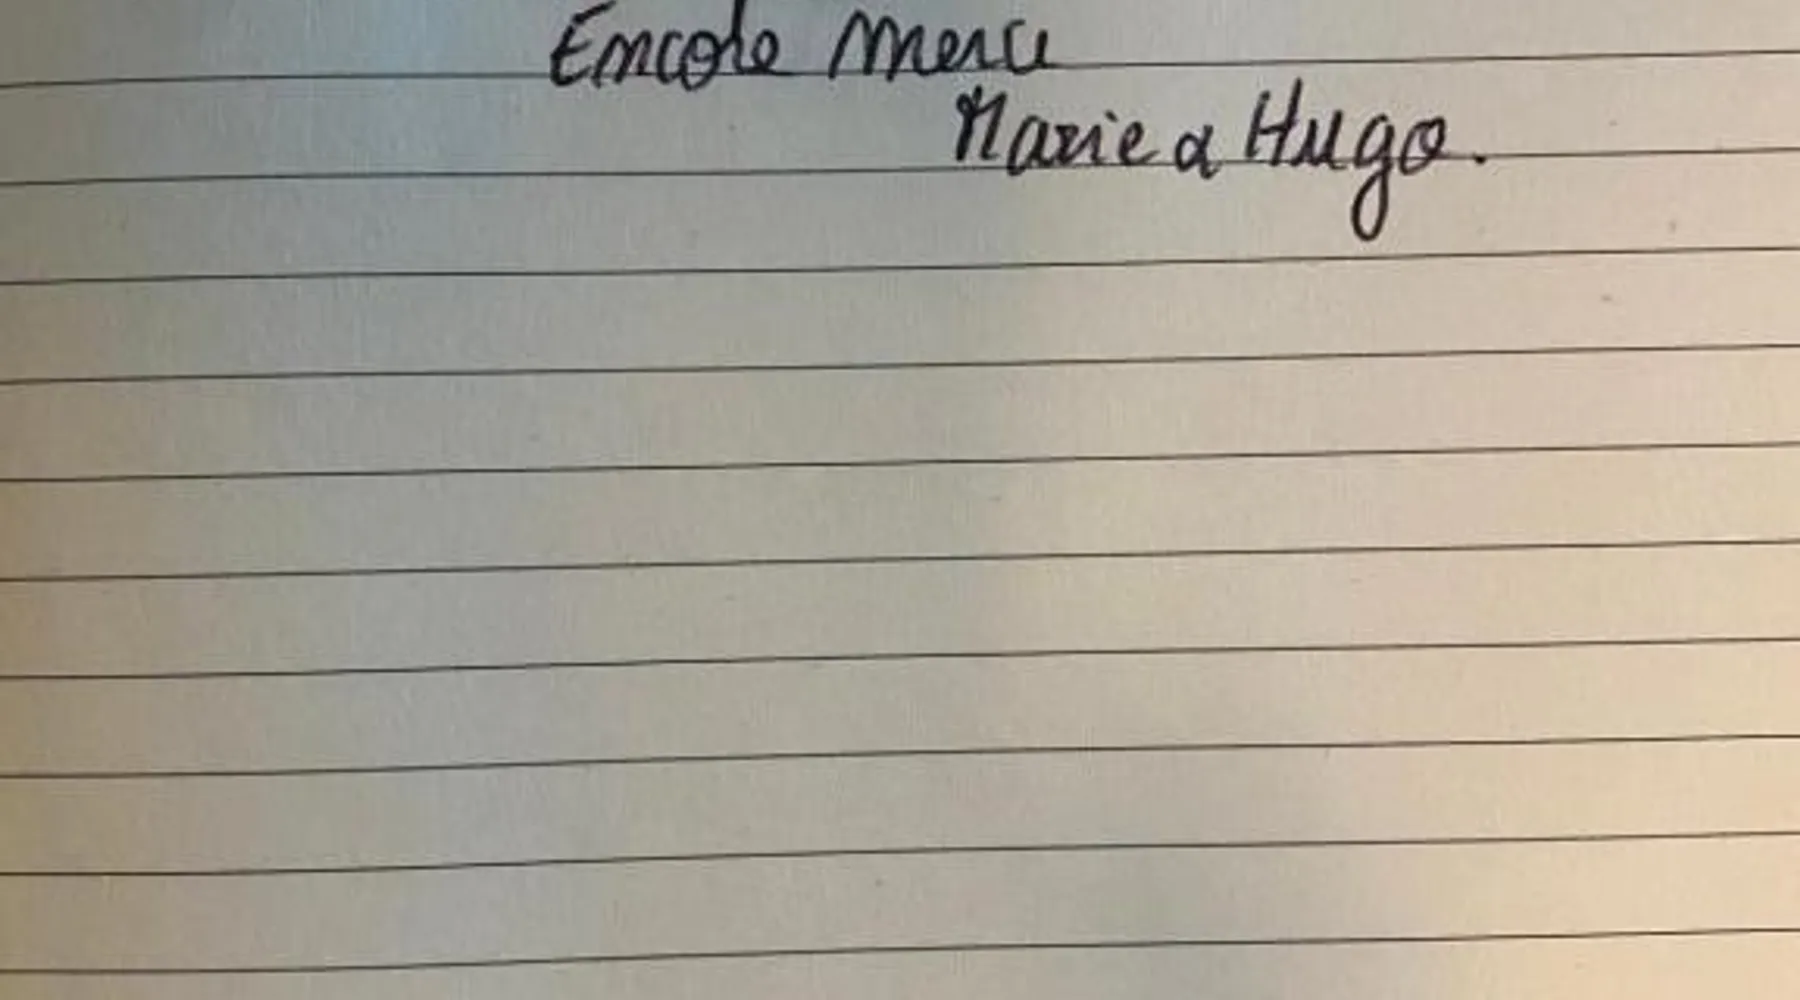 Encore merci
Marie & Hugo.